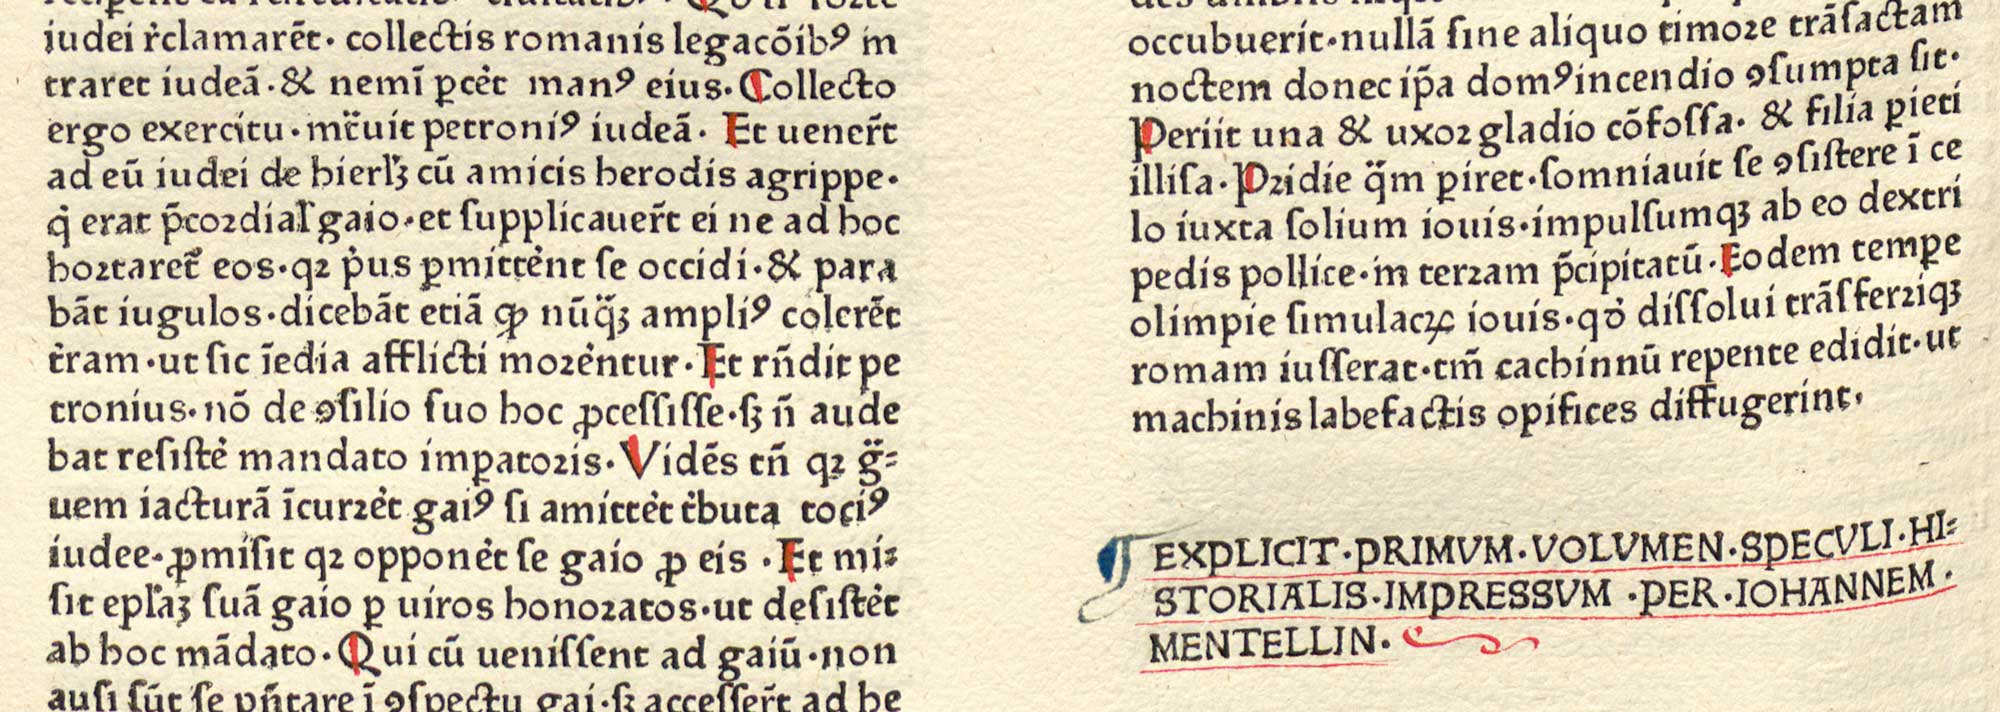 iudei r̾clamarēt· collectis romanis legacōib⁹ in
traret iudeā·& nemī ꝑcet̾ man⁹ eius·Collecto
ergo exercitu·mẗuit petroni⁹ iudeā· Et uener̄t
ad eū iudei de hierlꝫ cū amicis herodis agrippe·
q̇ erat p̄coꝛdial̾ gaio·et ſupplicauer̄t ei ne ad hoc
hoꝛtaret̄ eos·qꝛ p̾us ꝑmittēnt ſe occidi·& para
bāt iugulos·dicebāt etiā ꝙ nūq̈ꝫ ampli⁹ colerēt
t̾ram·ut ſic īedia afflicti moꝛēntur·Et rn̄dit pe
tronius·nō de ꝯſilio ſuo hoc ꝓceſſiſſe·ſꝫ n̄ aude
bat reſiſte̾ mandato imꝑatoꝛis·Vidēs tn̄ qꝛ g̈⸗
uem iacturā īcurꝛet̾ gai⁹ ſi amittet̾ t̾buta toci⁹
iudee·ꝓmiſit qꝛ opponet̾ ſe gaio ꝓ eis ·Et mi⸗
ſit epl̾aꝫ ſuā gaio ꝑ uiros honoꝛatos·ut deſiſtet̾
ab hoc mādato·Qui cū ueniſſent ad gaiū·non
auſi ſūt ſe pn̄tare ī ꝯſpectu gai·ſꝫ acceſſer̄t ad he
occubuerit·nullā ſine aliquo timoꝛe trāſactam
noctem donec ip̄a dom⁹incendio ꝯſumpta ſit·
Periit una & uxoꝛ gladio cōfoſſa· & filia pieti
illiſa·Pꝛidie q̈m ꝑiret·ſomniauit ſe ꝯſiſtere ī ce
lo iuxta ſolium iouis·impulſumqꝫ ab eo dextri
pedis pollice·in terꝛam p̄cipitatū·Eodem tempe
olimpie ſimulacꝝ iouis·qd̾ diſſolui trāſferꝛiqꝫ
romam iuſſerat·tm̄ cachinnū repente edidit·ut
machinis labefactis opifices diffugerint·
EXPLICIT·PRIMVM·VOLVMEN·SPECVLI·HI⸗
STORIALIS·IMPRESSVM ·PER·IOHANNEM·
MENTELLIN·